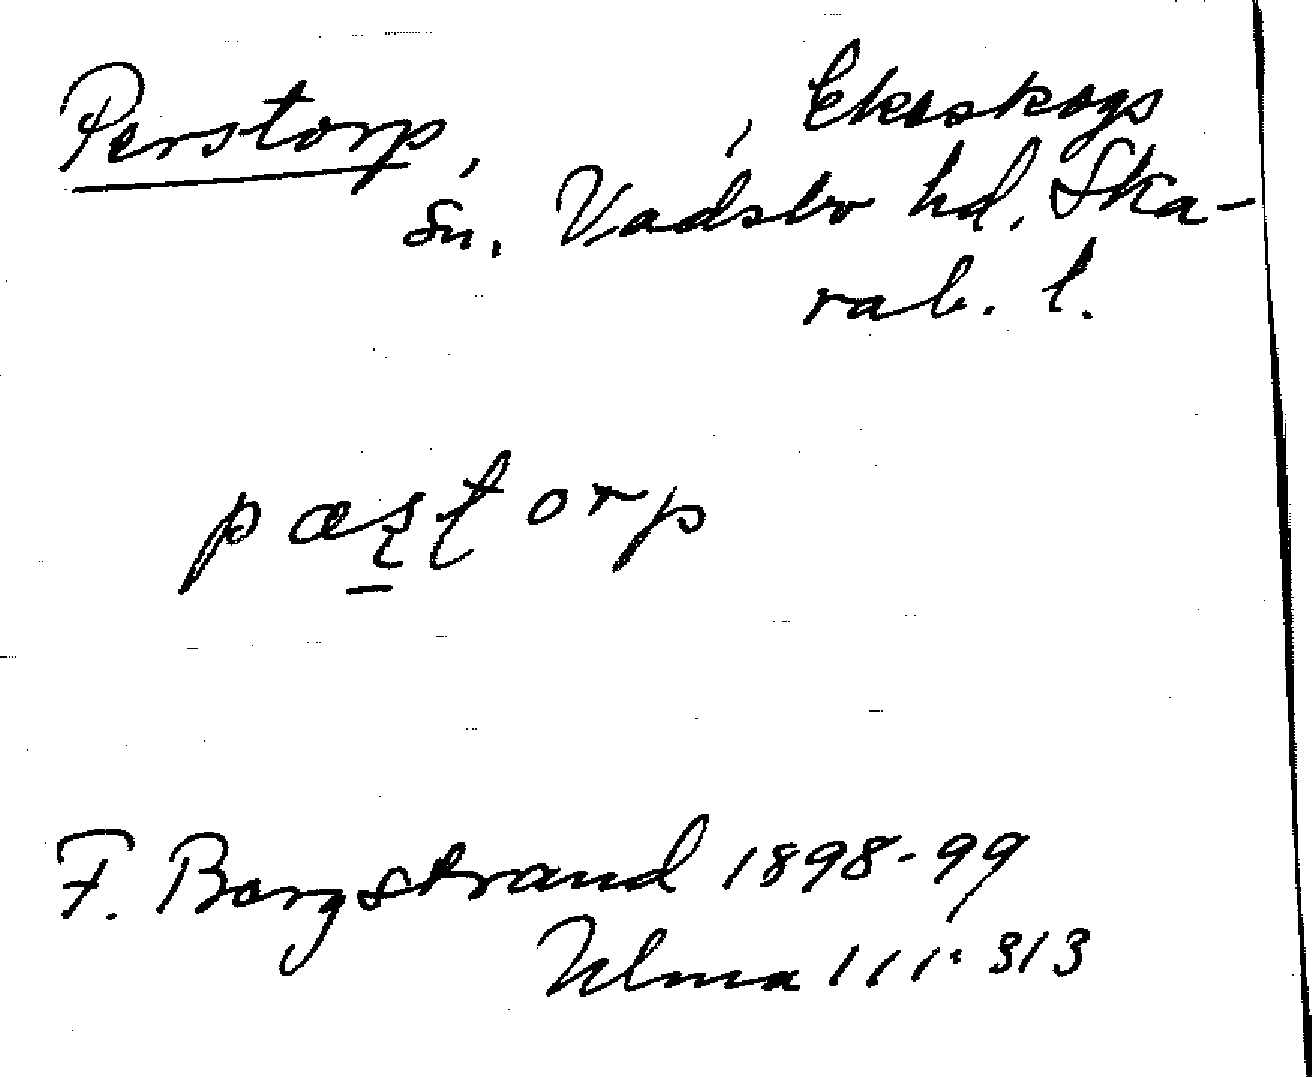 Perstorp, , Ekeskogs
sn. Vadsbo hd. Ska-
rab. l.
pæstorp
F. Borgstrand 1898-99
Ulma 111:313